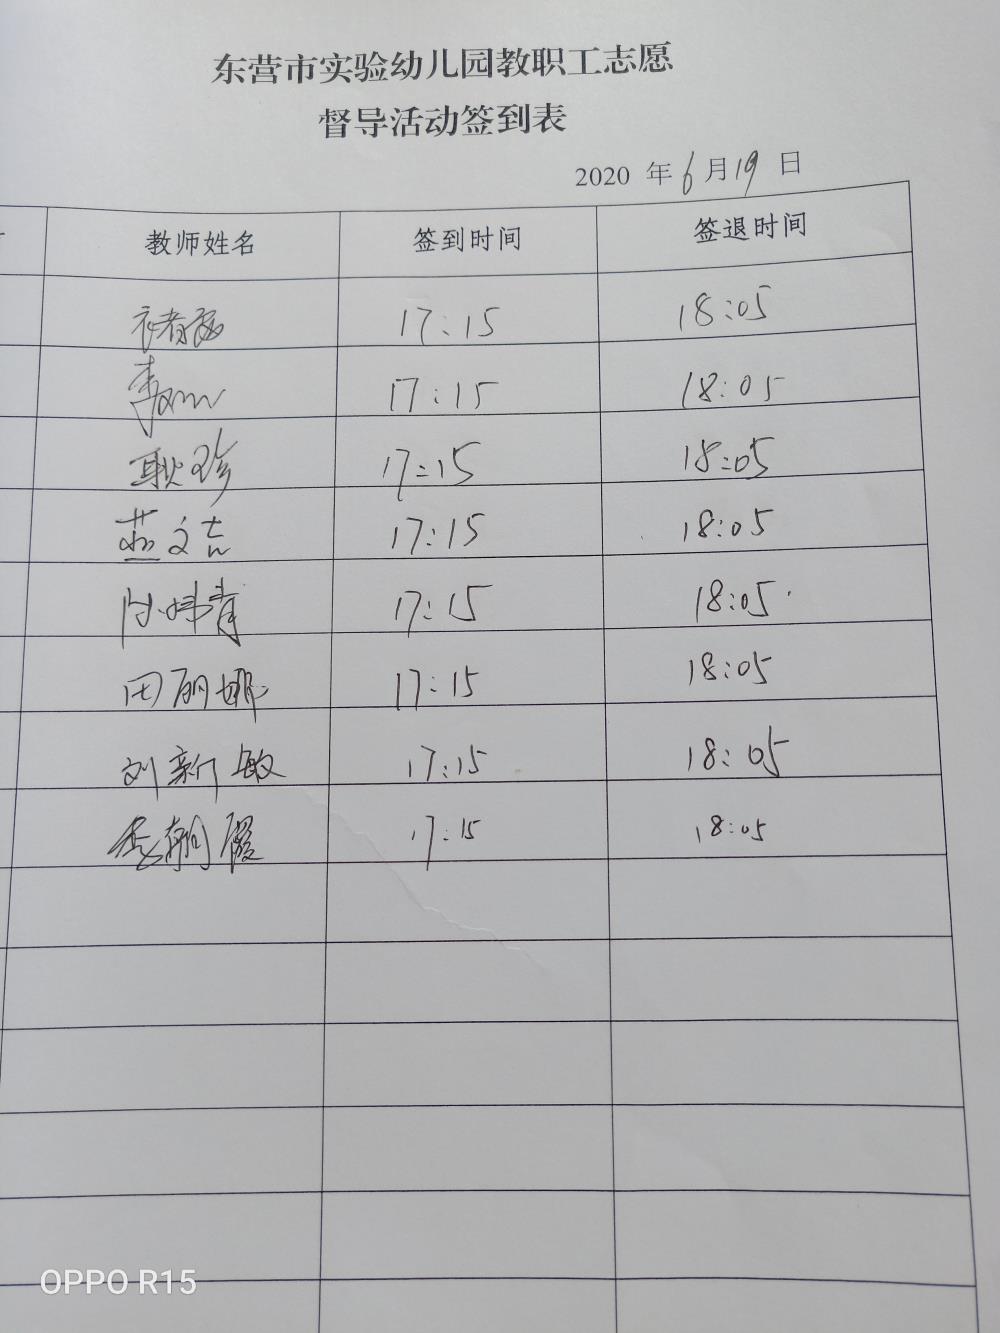 东营市实验幼儿园教职工志愿
督导活动签到表
2020 年 6 月 19 日
教师姓名 签到时间 签退时间
17:15 18:05
李 17:15 18:05
耿珍 17:15 18:05
燕文吉 17:15 18:05
陈炜青 17:15 18:05
田丽娜 17:15 18:05
刘新敏 17:15 18:05
李朝霞 17:15 18:05
OPPO R15